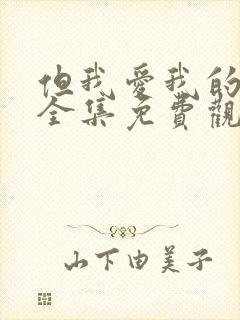 但我愛我的
全集免費觀
山下由美子